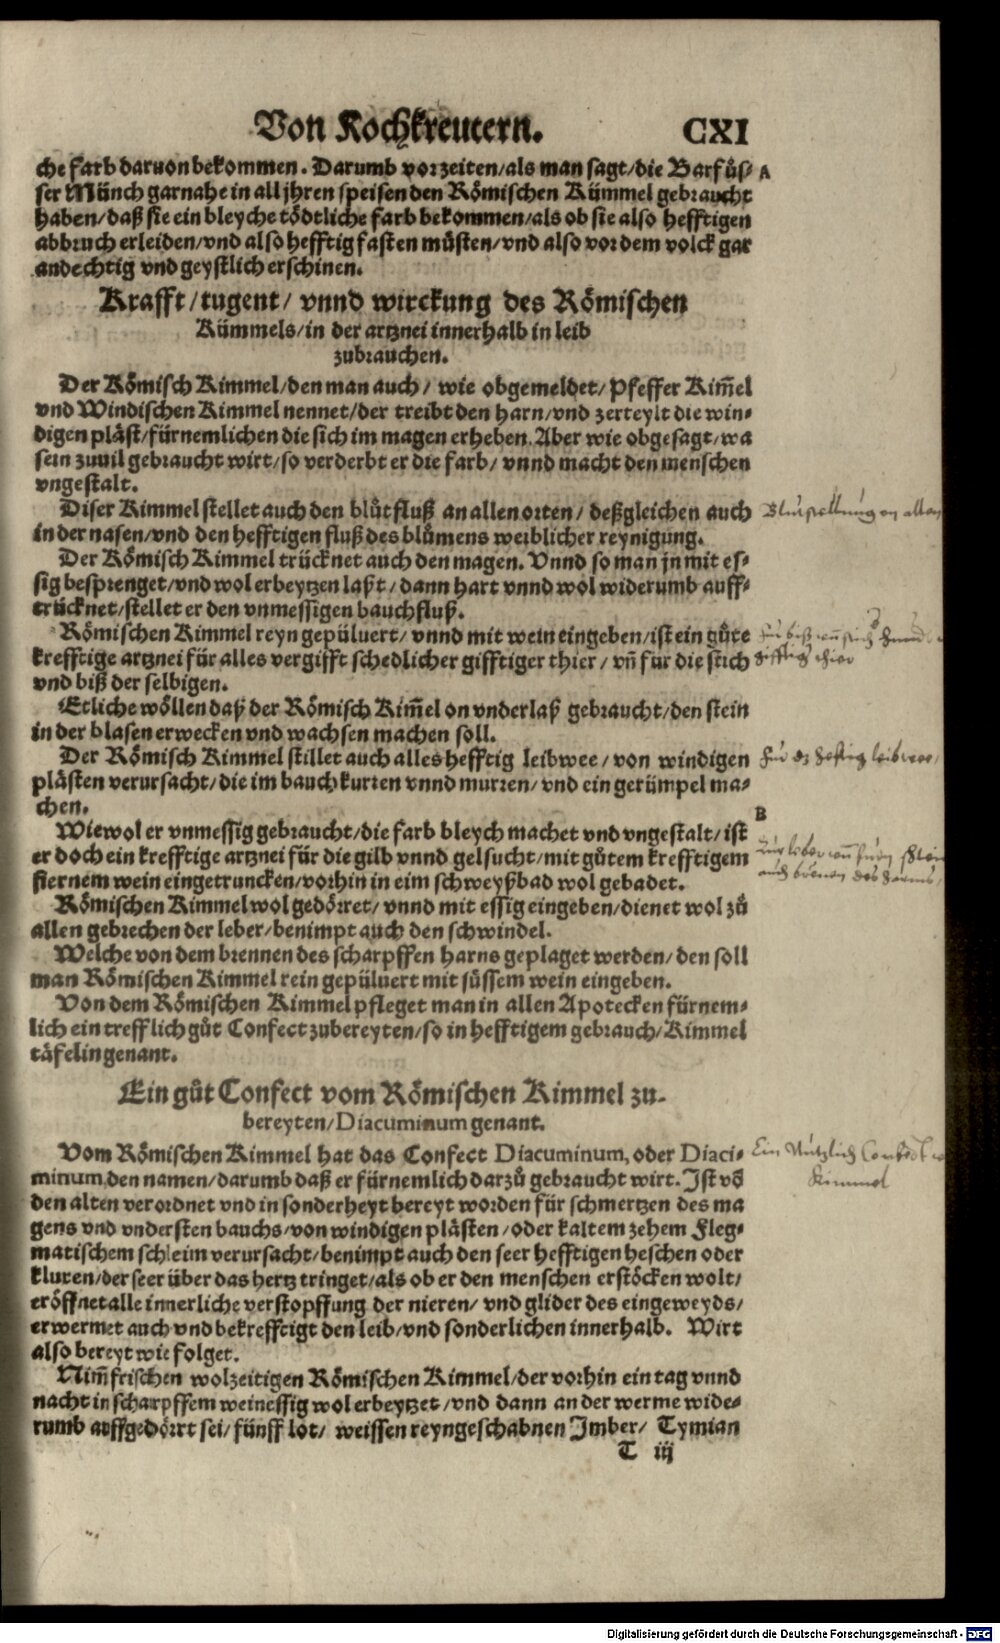 Von Kochkreutern. CXI
che farb daruon bekommen. Darumb vorzeiten/als man sagt/die Barfůs- A
ser Münch garnahe in all jhren speisen den Römischen Kümmel gebraucht
haben/daß sie ein bleyche tödtliche farb bekommen/als ob sie also hefftigen
abbruch erleiden/vnd also hefftig fasten müsten/vnd also vor dem volck gar
andechtig vnd geystlich erschinen.
Krafft/tugent/ vnnd wirckung des Römischen
Kümmels/in der artznei innerhalb in leib
zubrauchen.
Der Römisch Kimmel/den man auch/ wie obgemeldet/Pfeffer Kim̄el
vnd Windischen Kimmel nennet/der treibt den harn/vnd zerteylt die win-
digen pläst/fürnemlichen die sich im magen erheben. Aber wie obgesagt/wa
sein zuuil gebraucht wirt/so verderbt er die farb/ vnnd macht den menschen
vngestalt.
Diser Kimmel stellet auch den blůtfluß an allen orten/ deßgleichen auch
in der nasen/vnd den hefftigen fluß des blůmens weiblicher reynigung.
Der Römisch Kimmel trücknet auch den magen. Vnnd so man jn mit es-
sig besprenget/vnd wol erbeytzen laßt/dann hart vnnd wol widerumb auff-
trücknet/stellet er den vnmessigen bauchfluß.
Römischen Kimmel reyn gepüluert/ vnnd mit wein eingeben/ist ein gůte
krefftige artznei für alles vergifft schedlicher gifftiger thier/ vn̄ für die stich
vnd biß der selbigen.
Etliche wöllen daß der Römisch Kim̄el on vnderlaß gebraucht/den stein
in der blasen erwecken vnd wachsen machen soll.
Der Römisch Kimmel stillet auch alles hefftig leibwee/von windigen
plästen verursacht/die im bauch kurren vnnd murren/vnd ein gerümpel ma-
chen.
B
Wiewol er vnmessig gebraucht/die farb bleych machet vnd vngestalt/ist
er doch ein krefftige artznei für die gilb vnnd gelsucht/mit gůtem krefftigem
fiernem wein eingetruncken/vorhin in eim schweyßbad wol gebadet.
Römischen Kimmel wol gedörret/ vnnd mit essig eingeben/dienet wol zů
allen gebrechen der leber/benimpt auch den schwindel.
Welche von dem brennen des scharpffen harns geplaget werden/den soll
man Römischen Kimmel rein gepüluert mit süssem wein eingeben.
Von dem Römischen Kimmel pfleget man in allen Apotecken fürnem-
lich ein trefflich gůt Confect zubereyten/so in hefftigem gebrauch/Kimmel
täfelin genant.
Ein gůt Confect vom Römischen Kimmel zu-
bereyten/Diacuminum genant.
Vom Römischen Kimmel hat das Confect Diacuminum, oder Diaci-
minum, den namen/darumb daß er fürnemlich darzů gebraucht wirt. Ist vō
den alten verordnet vnd in sonderheyt bereyt worden für schmertzen des ma
gens vnd vndersten bauchs/von windigen plästen/oder kaltem zehem Fleg-
matischem schleim verursacht/benimpt auch den seer hefftigen heschen oder
kluxen/der seer über das hertz tringet/als ob er den menschen erstöcken wolt/
eröffnet alle innerliche verstopffung der nieren/ vnd glider des eingeweyds/
erwermet auch vnd bekrefftigt den leib/vnd sonderlichen innerhalb. Wirt
also bereyt wie folget.
Nim̄ frischen wolzeitigen Römischen Kimmel/der vorhin ein tag vnnd
nacht in scharpffem weinessig wol erbeytzet/vnd dann an der werme wide-
rumb auffgedörrt sei/fünff lot/ weissen reyngeschabnen Imber/ Tymian
T iij
Blutstellung an allen
Für dz heftig leibwee
Ein Nützlich Confect
Kimmel
Digitalisierung gefördert durch die Deutsche Forschungsgemeinschaft - DFG